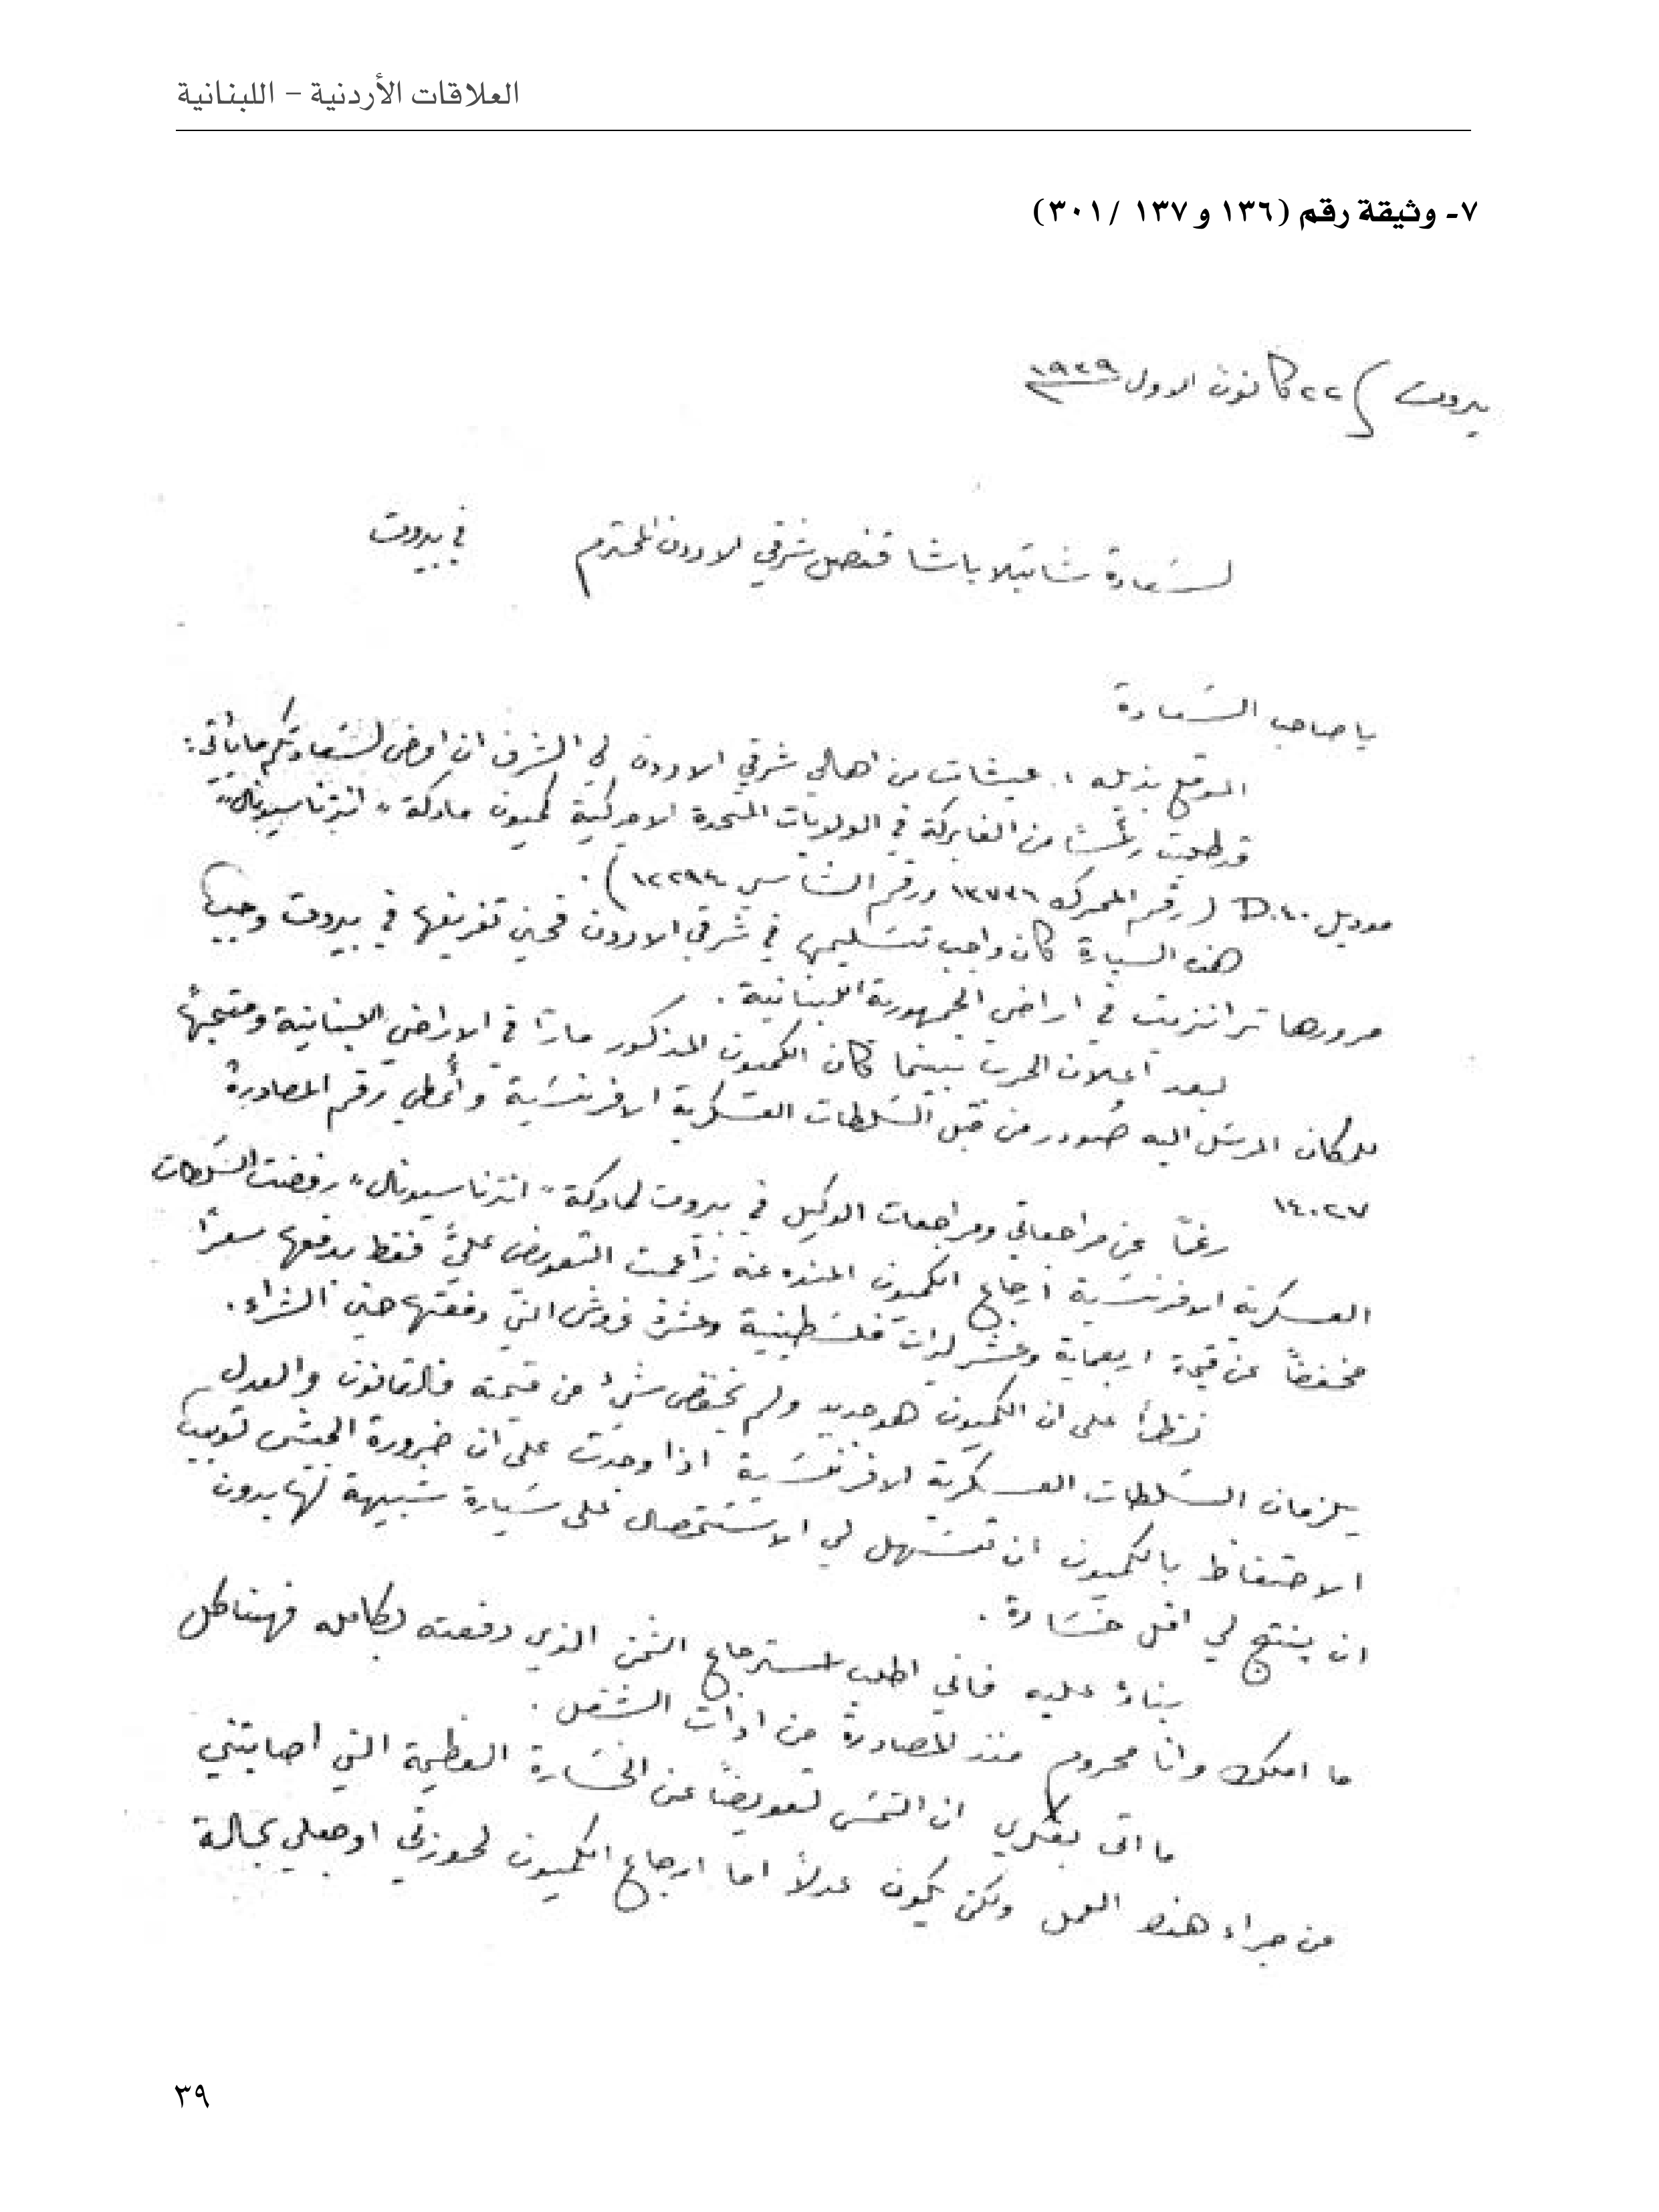 العلاقات الأردنية – اللبنانية
٧- وثيقة رقم (١٣٦ و ١٣٧ /٣٠١)
بيروت ٢٢ كانون الاول ١٩٣٩
لسعادة شاتيلا باشا قنصل شرقي الاردن المحترم في بيروت
يا صاحب السعادة
الموقع بذيله ا. عيشات من اهالي شرقي الاردن لي الشرف ان اعرض لسعادتكم ما يأتي:
قد طلبت من الفابركة في الولايات المتحدة الاميركية كميون ماركة "انترناسيونال"
موديل D.٤٠ (رقم المحرك ١٣٧٤٦ ورقم الشاسي ١٢٢٩٤).
هذه السيارة كان واجب تسليمها في شرقي الاردن فحين تفريغها في بيروت وجب
مرورها ترانزيت في اراضي الجمهورية اللبنانية.
بعد اعلان الحرب بينما كان الكميون المذكور مارًا في الاراضي اللبنانية ومتجهًا
للمكان المرسل اليه صودر من قبل السلطات العسكرية الافرنسية وأعطي رقم المصادرة
١٤٠٢٧
رغمًا عن مراجعاتي ومراجعات الوكيل في بيروت لماركة "انترناسيونال" رفضت السلطات
العسكرية الافرنسية ارجاع الكميون المنوه عنه زاعمت التعويض عليّ فقط بدفعها سعرًا
مخفضًا عن قيمة اربعماية وعشر ليرات فلسطينية وعشرة قروش التي دفعتها حين الشراء.
نظرًا على ان الكميون هو جديد ولم ينقص شيء من قيمته فالقانون والعدل
يلزمان السلطات العسكرية الافرنسية اذا وجدت على ان ضرورة الجيش توجب
الاحتفاظ بالكميون ان تسهل لي الاستحصال على سيارة شبيهة لها بدون
ان ينتج لي اقل خسارة.
بناءً عليه فاني اطلب استرجاع الثمن الذي دفعته بكامله فهذا كل
ما املك وانا محروم منذ المصادرة من ادوات الشغل.
ما اتى بفكري ان التمس تعويضًا عن الخسارة العظيمة التي اصابتني
من جراء هذا العمل ولكن يكون عدلاً اما ارجاع الكميون لحوزتي او جعلي بحالة
٣٩